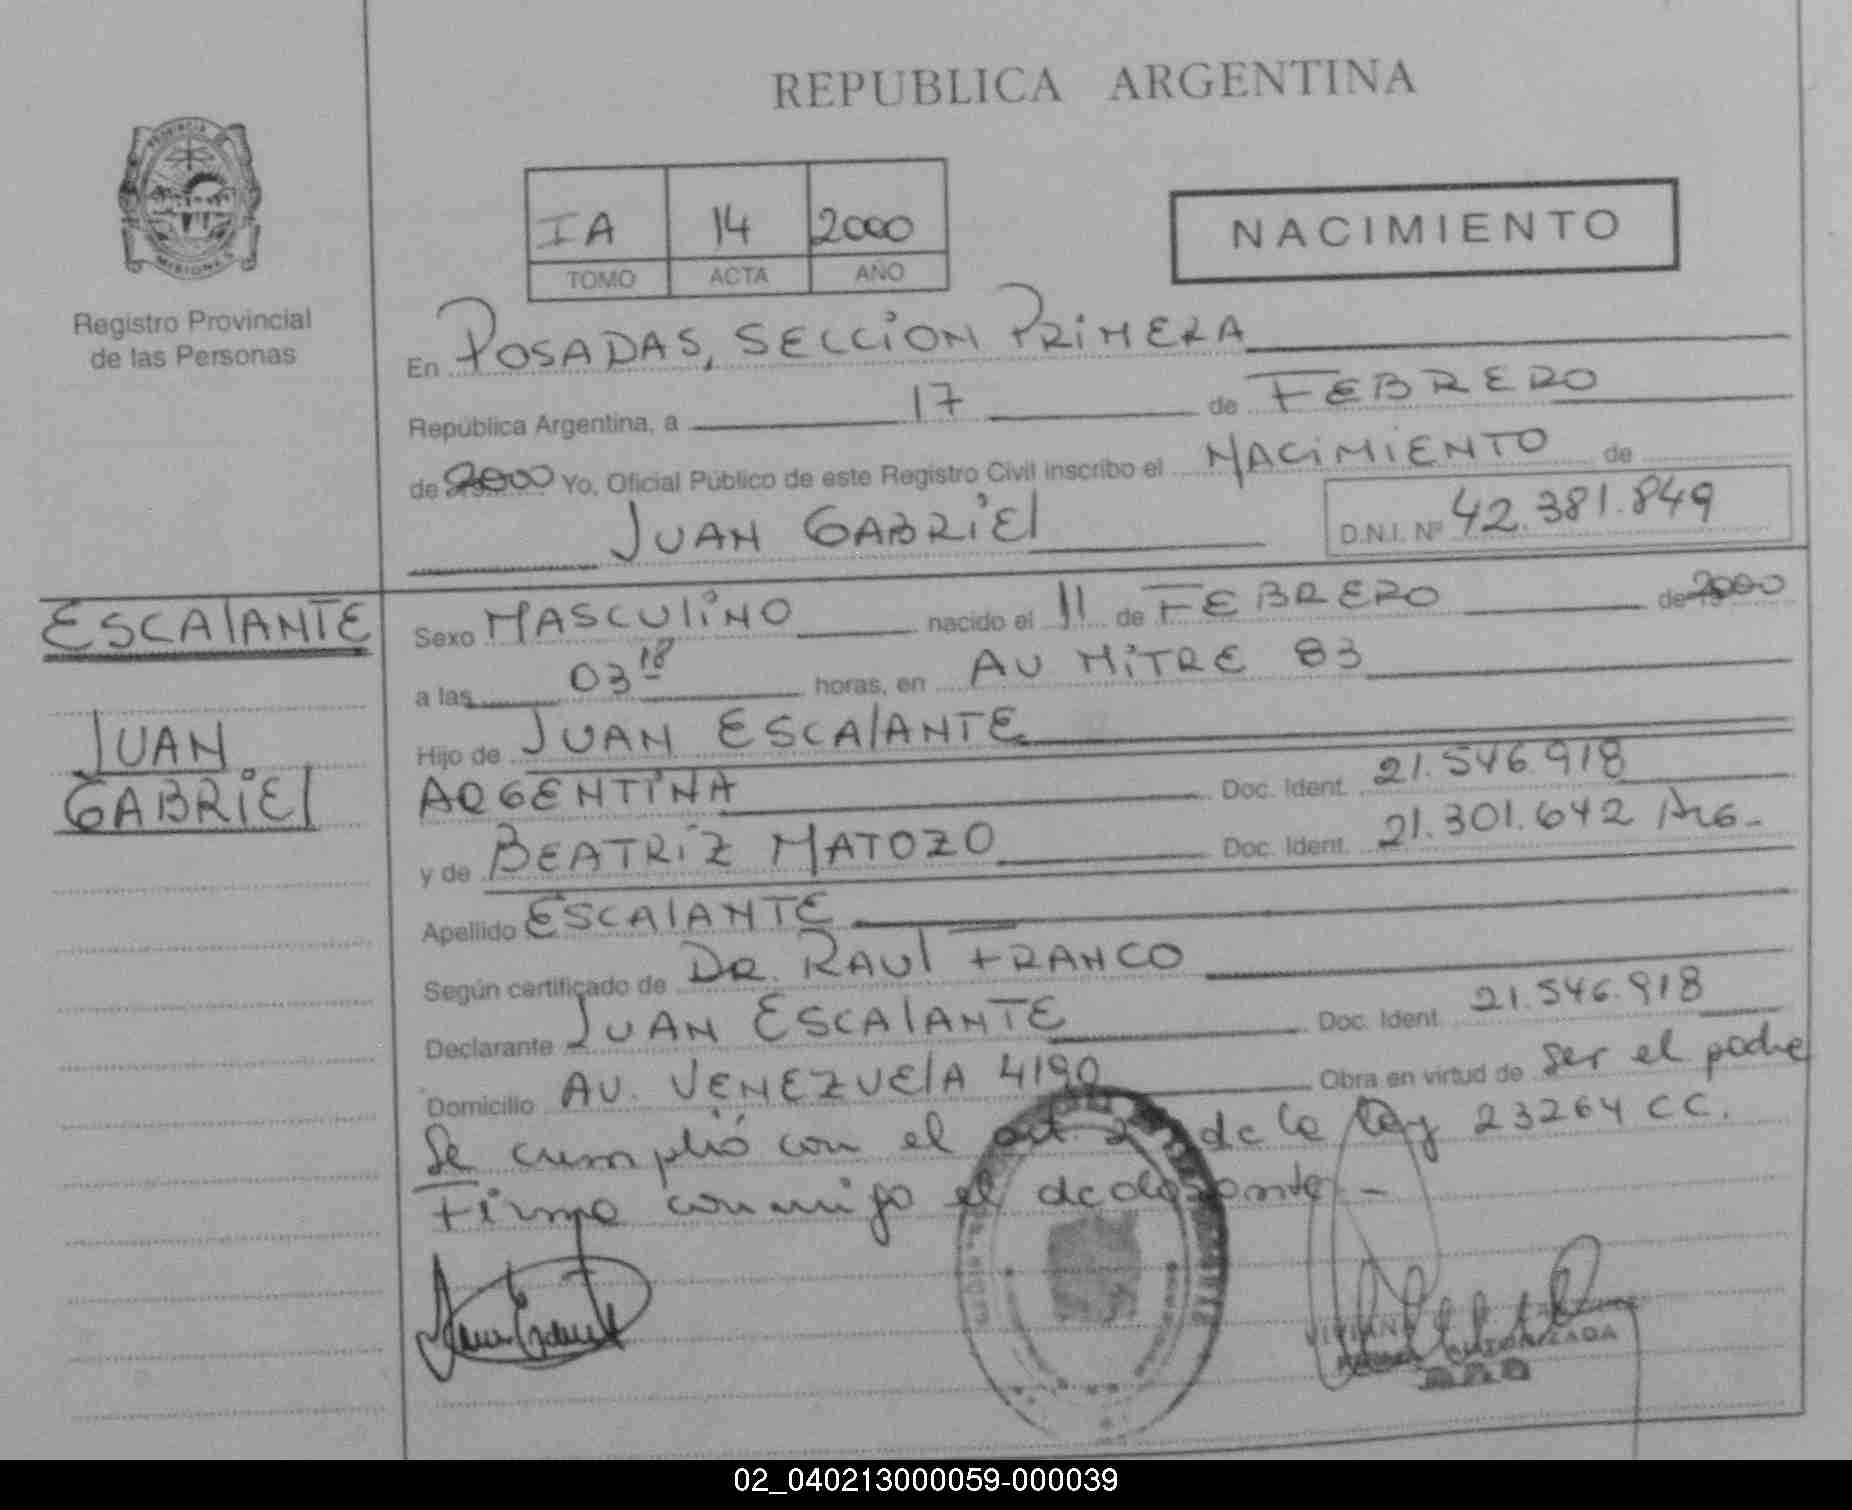 REPUBLICA ARGENTINA
PROVINCIA
MISIONES
Registro Provincial
de las Personas
IA 14 2000
TOMO ACTA AÑO
NACIMIENTO
En POSADAS, SECCION PRIMERA
República Argentina, a 17 de FEBRERO
de 2000 Yo, Oficial Público de este Registro Civil inscribo el NACIMIENTO de
JUAN GABRIEL D.N.I. Nº 42.381.849
ESCALANTE
JUAN
GABRIEL
Sexo MASCULINO nacido el 11 de FEBRERO de 2000
a las 03 18 horas, en AV MITRE 83
Hijo de JUAN ESCALANTE
ARGENTINA Doc. Ident. 21.546.918
y de BEATRIZ MATOZO Doc. Ident. 21.301.642 ARG.-
Apellido ESCALANTE
Según certificado de DR. RAUL FRANCO
Declarante JUAN ESCALANTE Doc. Ident. 21.546.918
Domicilio AV. VENEZUELA 4190 Obra en virtud de ser el padre
Se cumplió con el art. de la ley 23264 CC.
Firma conmigo el declarante.-
AUTORIZADA
02_040213000059-000039